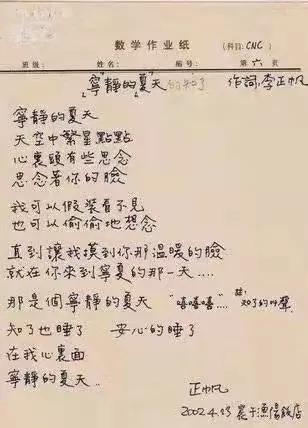 数学作业纸
(科目: CNC)
班级: 姓名: 编号: 第六页
"寧靜的夏"天的知了 作詞:李正帆
寧靜的夏天
天空中繁星點點
心裏頭有些思念
思念著你的臉
我可以假裝看不見
也可以偷偷地想念
直到讓我摸到你那溫暖的臉
就在你來到寧夏的那一天....
那是個寧靜的夏天 "嘻嘻嘻..." 註:知了的叫聲
知了也睡了 安心的睡了
在我心裏面
寧靜的夏天..
正帆
2002.4.13 於漁陽飯店